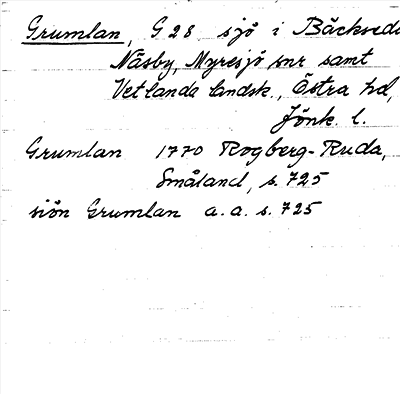 Grumlan, G 28 sjö i Bäckseda
Näsby, Myresjö snr samt
Vetlanda landsk., Östra hd,
Jönk. l.
Grumlan 1770 Rogberg-Ruda,
Småland, s. 725
siön Grumlan a.a. s. 725